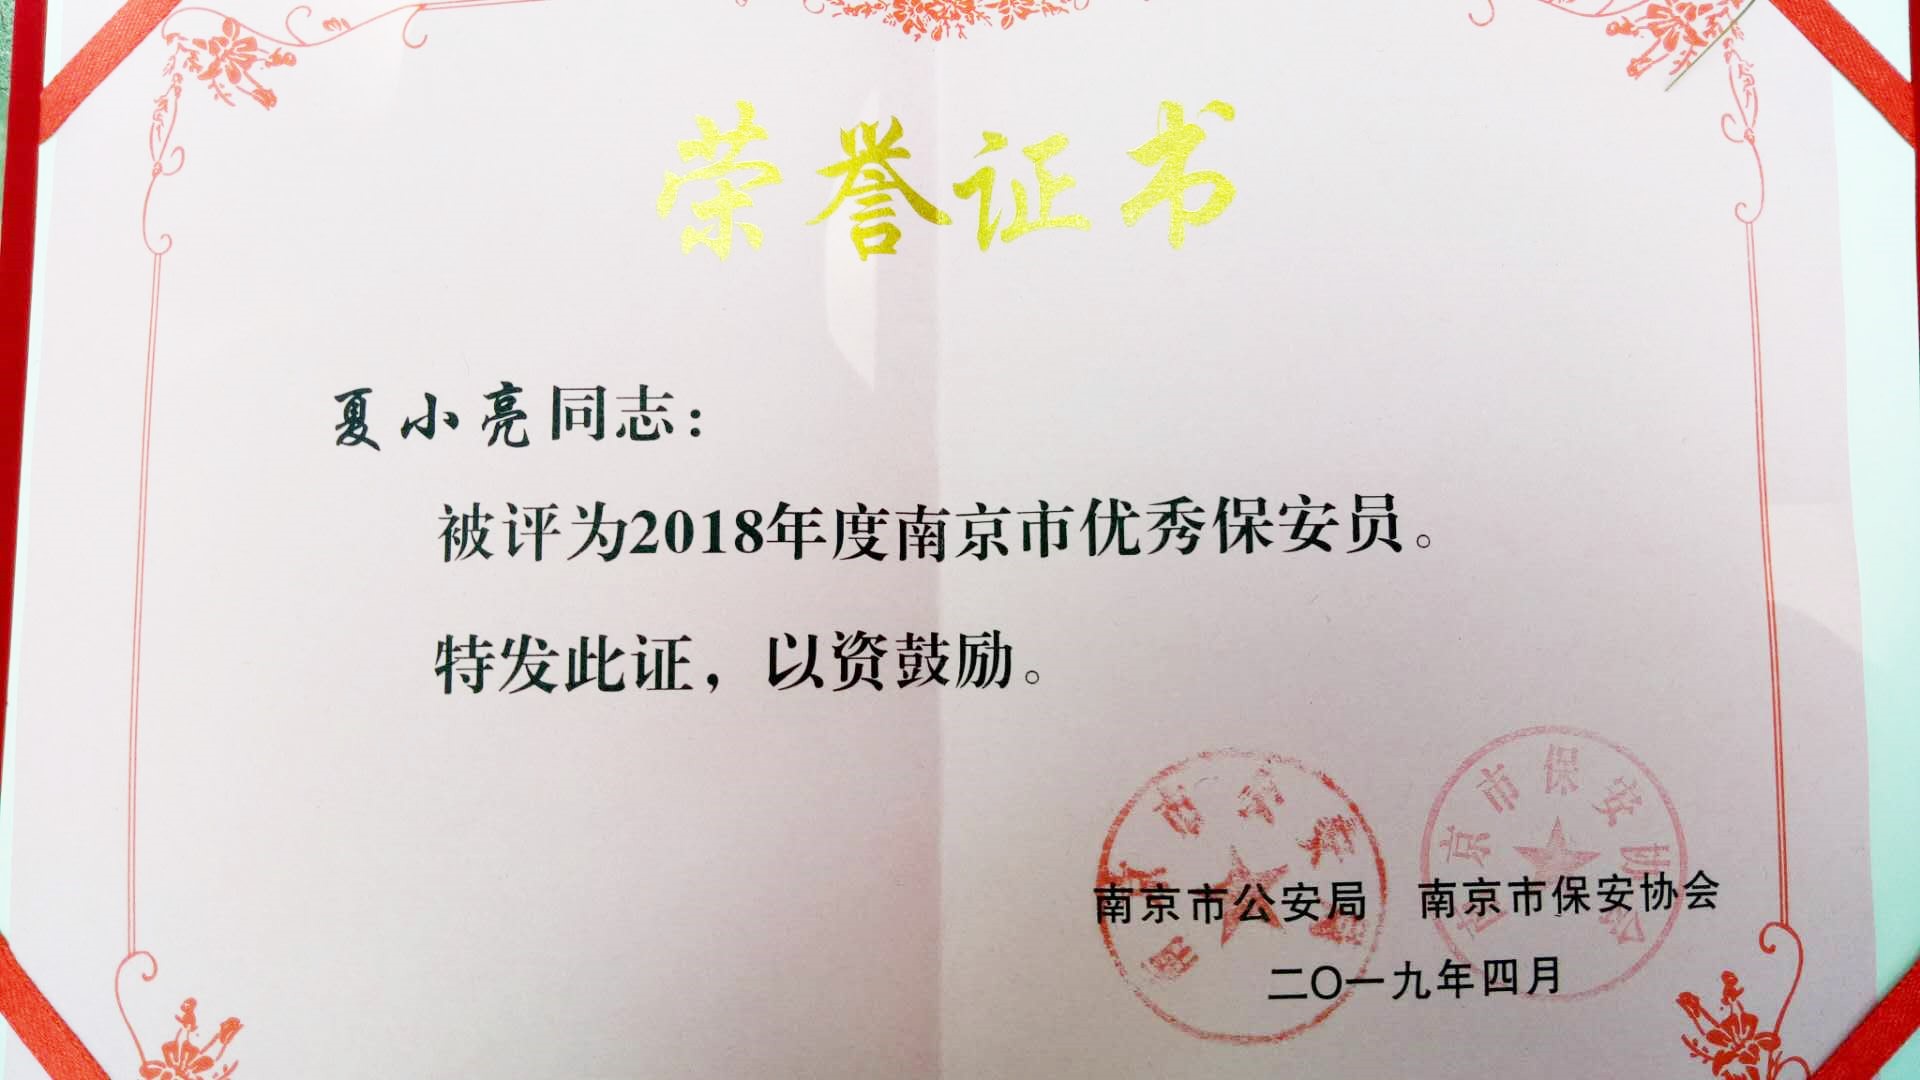 荣誉证书
夏小亮同志：
被评为2018年度南京市优秀保安员。
特发此证，以资鼓励。
南京市公安局 南京市保安协会
二〇一九年四月
南京市公安局
南京市保安协会